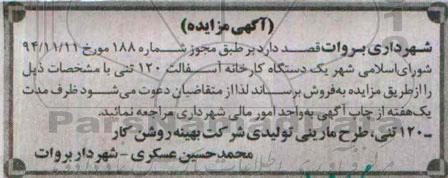 (آگهی مزایده)
شهرداری بروات قصد دارد بر طبق مجوز شماره ۱۸۸ مورخ ۹۴/۱۱/۱۱
شورای اسلامی شهر یک دستگاه کارخانه آسفالت ۱۲۰ تنی با مشخصات ذیل
را از طریق مزایده به فروش برساند لذا از متقاضیان دعوت می شود ظرف مدت
یک هفته از چاپ آگهی به واحد امور مالی شهرداری مراجعه نمائید.
ـ ۱۲۰ تنی، طرح مارینی تولیدی شرکت بهینه روشن کار
محمد حسین عسکری - شهردار بروات